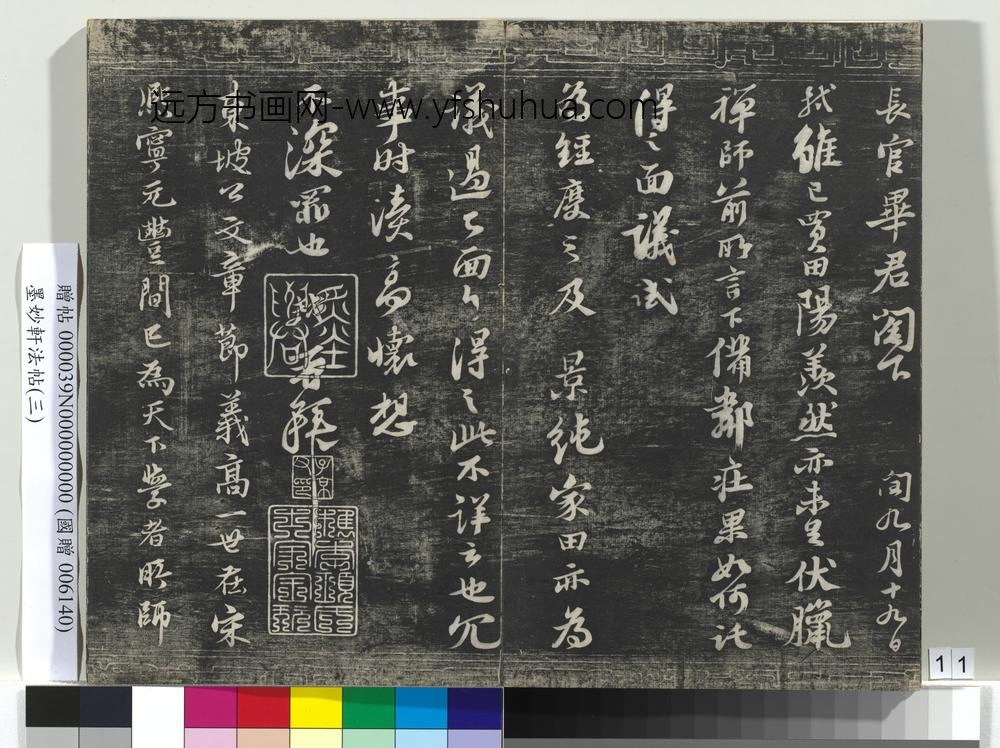 長官畢君閣下 閏九月十九日
軾雖已買田陽羨然亦未足伏臘
禪師前所言下備鄰莊果如何託
得之面議試
為經度之及 景純家田亦為
議過已面今得之此不詳云也冗
事時瀆高懷想
深罪也 再拜
東坡公文章節義高一世在宋
熙寧元豐間已為天下學者所師
远方书画网-www.yfshuhua.com
贈帖 000039N000000000 (國贈 006140)
墨妙軒法帖(三)
11